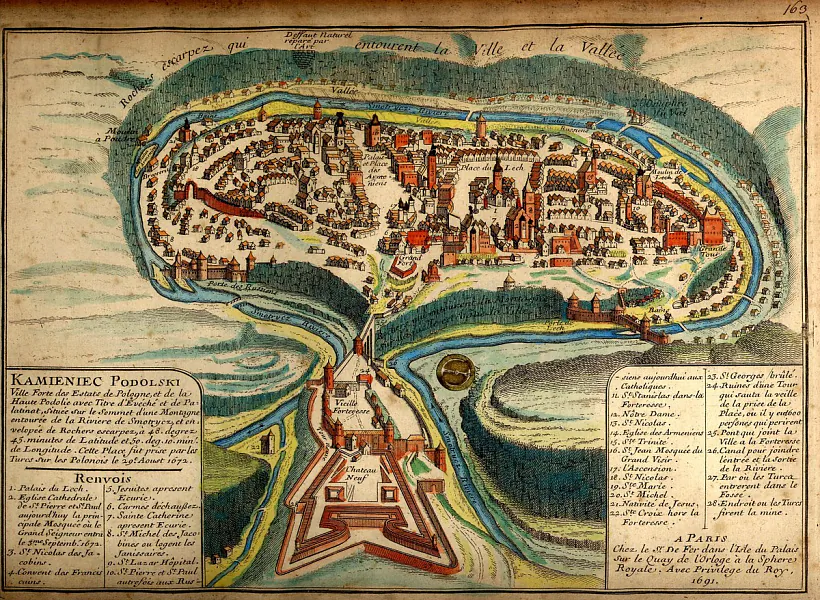 163
Deffaut Naturel
réparé par
l'Art
Rochers escarpez qui entourent la Ville et la Vallée
Vallée
Smotrycz Riviere
Vallée
Moulin
a Poudre
Palais
et Place
des Arme-
niens
Place du Lech
Moulin du
Lech
Grande
Tour
Grand
Fort
Porte des Russiens
Smotrycz Riviere
Porte de
Lech
Bain
Vieille
Forteresse
Chateau
Neuf
KAMIENIEC PODOLSKI
Ville Forte des Estats de Pologne, et de la
Haute Podolie avec Titre d'Evéché et de Pa-
latinat, Située sur le Sommet d'une Montagne
entourée de la Riviere de Smotrycz, et en-
velopée de Rochers escarpez, a 48. degrez
45. minutes de Latitude et 50. deg. 10. min.
de Longitude. Cette Place fut prise par les
Turcs Sur les Polonois le 29. Aoust 1672.
Renvois
1. Palais du Lech.
2. Eglise Cathedrale
de St. Pierre et St. Paul
aujourdhuy la prin-
cipale Mosquée où le
Grand Seigneur entra
le 3me Septemb. 1672.
3. St. Nicolas des Ja-
cobins.
4. Convent des Francis
cains.
5. Jesuites, apresent
Ecurie.
6. Carmes déchaussez.
7. Sainte Catherine
apresent Ecurie.
8. St. Michel des Jaco-
bines ou logent les
Janissaires.
9. St. Lazar Hôpital.
10. St. Pierre et St. Paul
autrefois aux Rus-
-siens aujourdhui aux
Catholiques.
11. St. Stanislas dans la
Forteresse.
12. Nôtre Dame.
13. St. Nicolas.
14. Eglise des Armeniens
15. Ste. Trinité.
16. St. Jean Mosquée du
Grand Visir.
17. l'Ascension.
18. St. Nicolas.
19. Ste. Marie.
20. St. Michel.
21. Nativité de Jesus.
22. Ste. Croix hors la
Forteresse.
23. St. Georges brûlé.
24. Ruines d'une Tour
qui sauta la veille
de la prise de la
Place, où il y eu 600
persones qui perirent
25. Pont qui joint la
Ville à la Forteresse
26. Canal pour joindre
l'entrée et la Sortie
de la Riviere.
27. Par où les Turcs
entrerent dans le
Fossé.
28. Endroit ou les Turcs
firent la mine.
A PARIS
Chez le Sr. De Fer dans l'Isle du Palais
Sur le Quay de l'Orloge a la Sphere
Royale. Avec Privilege du Roy,
1691.